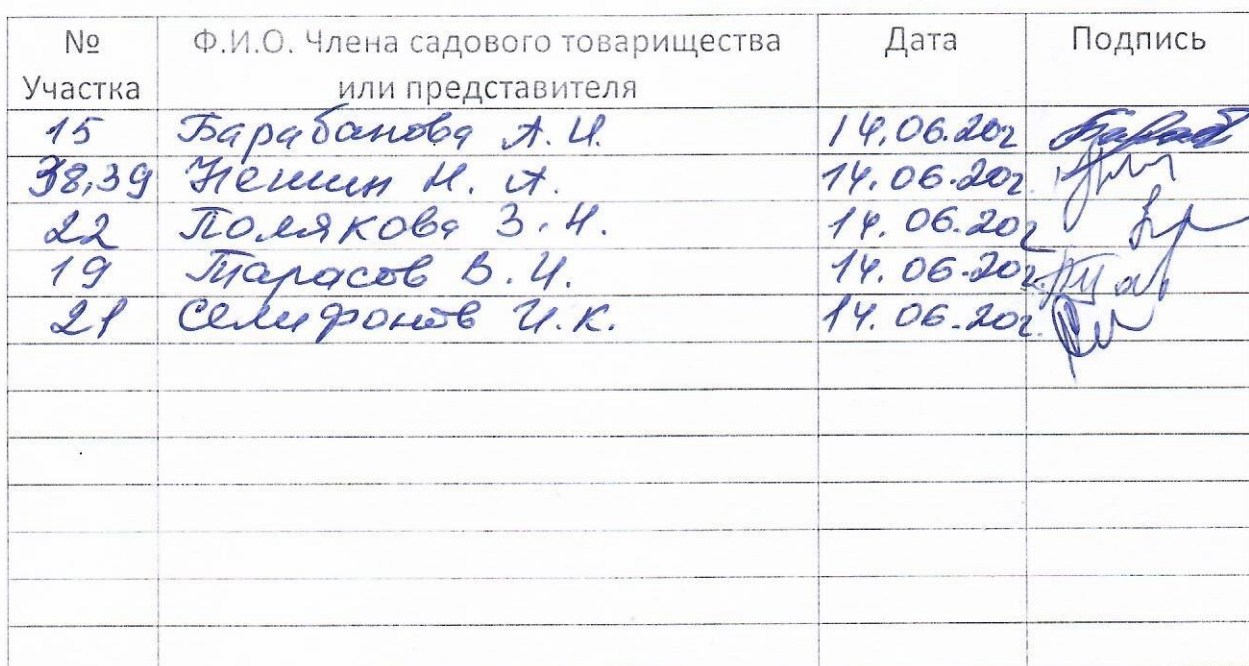 № Участка Ф.И.О. Члена садового товарищества или представителя Дата Подпись
15 Барабанова А.И. 14.06.20г
38,39 Н. А. 14.06.20г.
22 Полякова З.Н. 14.06.20г
19 Тарасов В.И. 14.06.20г.
21 Селифонтов И.К. 14.06.20г.